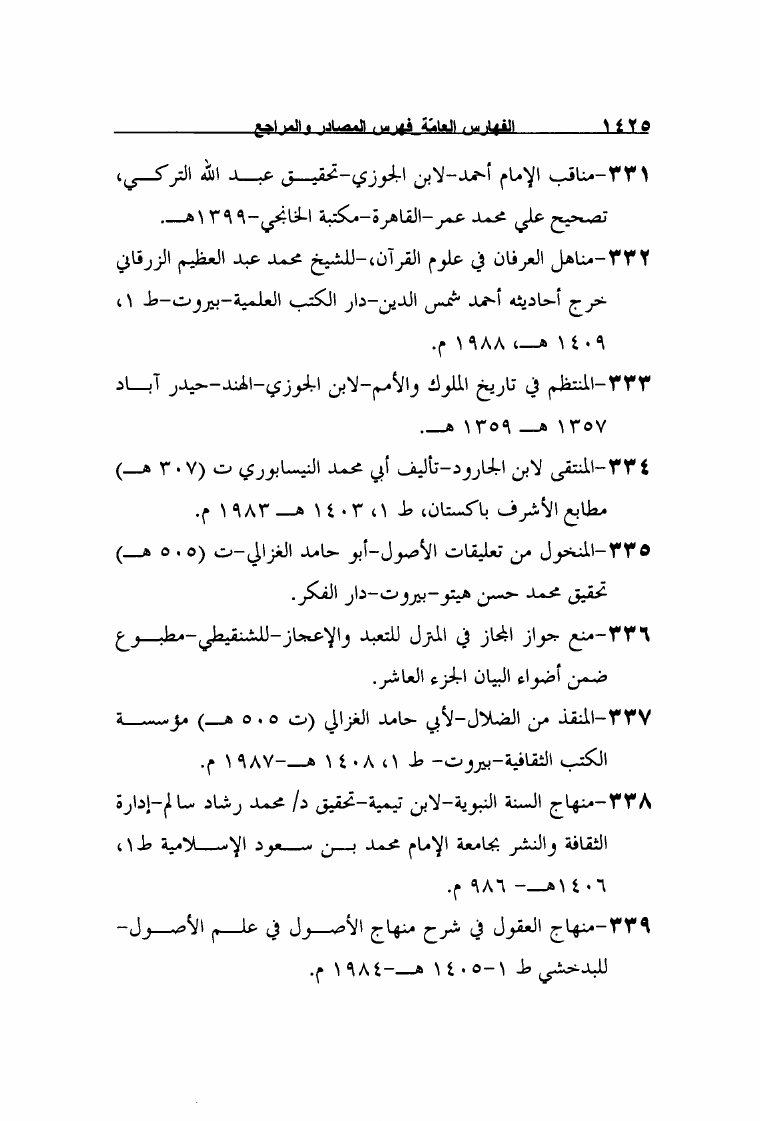 ١٤٢٥ الفهارس العامّة فهرس المصادر والمراجع
٣٣١-مناقب الإمام أحمد-لابن الجوزي-تحقيق عبد الله التركي،
تصحيح علي محمد عمر-القاهرة-مكتبة الخانجي-١٣٩٩هـ.
٣٣٢-مناهل العرفان في علوم القرآن،-للشيخ محمد عبد العظيم الزرقاني
خرج أحاديثه أحمد شمس الدين-دار الكتب العلمية-بيروت-ط ١،
١٤٠٩ هـ، ١٩٨٨ م.
٣٣٣-المنتظم في تاريخ الملوك والأمم-لابن الجوزي-الهند-حيدر آباد
١٣٥٧ هـ ١٣٥٩ هـ.
٣٣٤-المنتقى لابن الجارود-تأليف أبي محمد النيسابوري ت (٣٠٧ هـ)
مطابع الأشرف باكستان، ط ١، ١٤٠٣ هـ ١٩٨٣ م.
٣٣٥-المنخول من تعليقات الأصول-أبو حامد الغزالي-ت (٥٠٥ هـ)
تحقيق محمد حسن هيتو-بيروت-دار الفكر.
٣٣٦-منع جواز المجاز في المنزل للتعبد والإعجاز-للشنقيطي-مطبوع
ضمن أضواء البيان الجزء العاشر.
٣٣٧-المنقذ من الضلال-لأبي حامد الغزالي (ت ٥٠٥ هـ) مؤسسة
الكتب الثقافية-بيروت- ط ١، ١٤٠٨ هـ-١٩٨٧ م.
٣٣٨-منهاج السنة النبوية-لابن تيمية-تحقيق د/ محمد رشاد سالم-إدارة
الثقافة والنشر بجامعة الإمام محمد بن سعود الإسلامية ط١،
١٤٠٦هـ- ٩٨٦ م.
٣٣٩-منهاج العقول في شرح منهاج الأصول في علم الأصول-
للبدخشي ط ١-١٤٠٥ هـ-١٩٨٤ م.